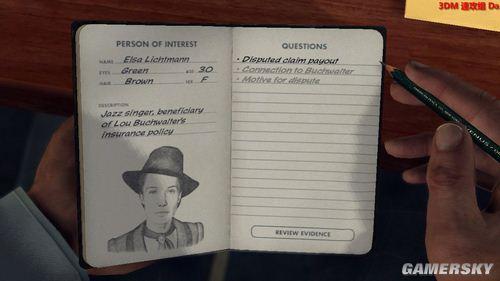 3DM 速攻组 Da
PERSON OF INTEREST
NAME Elsa Lichtmann
EYES Green AGE 30
HAIR Brown SEX F
DESCRIPTION
Jazz singer, beneficiary
of Lou Buchwalter's
insurance policy
QUESTIONS
• Disputed claim payout
• Connection to Buchwalter
• Motive for dispute
REVIEW EVIDENCE
GAMERSKY